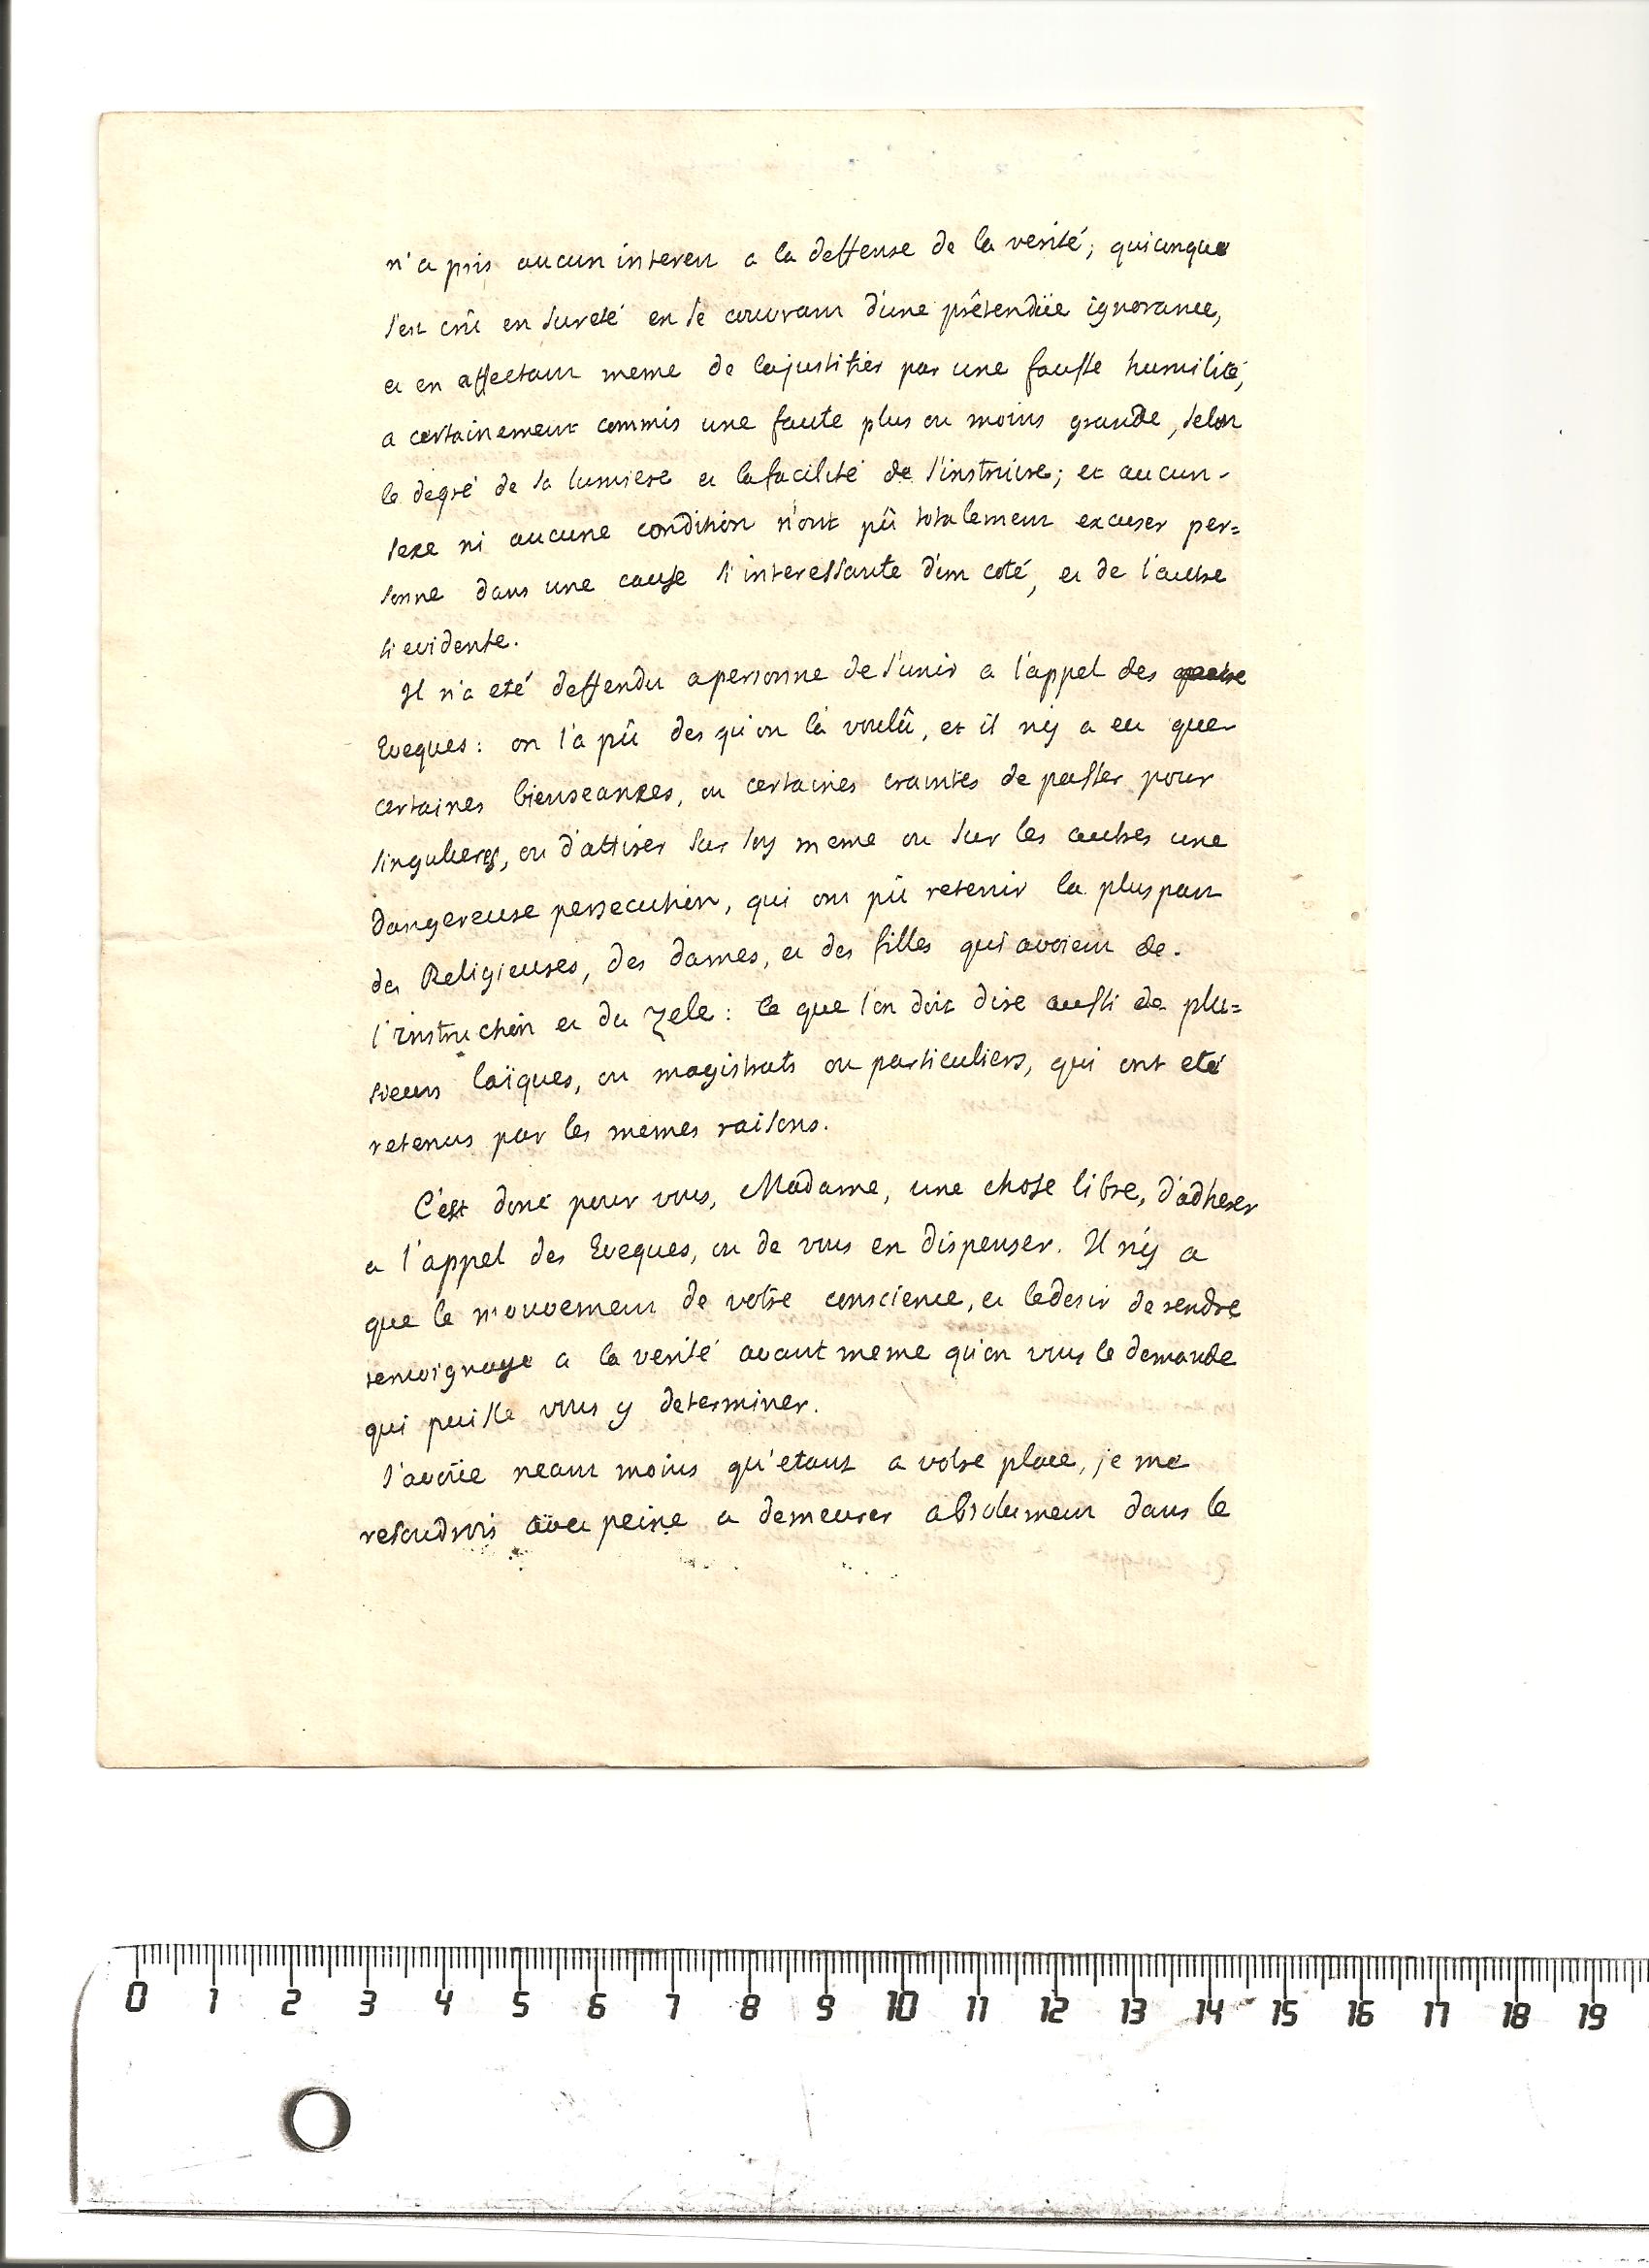 n'a pris aucun interest a la deffense de la verité; quiconque
s'est crû en sureté en se couvrant d'une prêtendüe ignorance,
et en affectant meme de la justifier par une fausse humilité,
a certainement commis une faute plus ou moins grande, selon
le degré de sa lumiere et la facilité de s'instruire; et aucun
sexe ni aucune condition n'ont pû totalement excuser per=
sonne dans une cause si interessante d'un coté, et de l'autre
si evidente.
Il n'a eté deffendu a personne de s'unir a l'appel des quatre
Eveques: on l'a pû des qu'on l'a voulû, et il n'y a eu que
certaines bienseances, ou certaines craintes de passer pour
singuliers, ou d'attirer sur soy meme ou sur les autres une
dangereuse persecution, qui ont pû retenir la pluspart
des Religieuses, des dames, et des filles qui avoient de
l'instruction et du zele: ce que l'on doit dire aussi de plu=
sieurs laïques, ou magistrats ou particuliers, qui ont eté
retenus par les memes raisons.
C'est donc pour vous, Madame, une chose libre, d'adherer
a l'appel des Eveques, ou de vous en dispenser. Il n'y a
que le mouvement de votre conscience, et le desir de rendre
temoignage a la verité avant meme qu'on vous le demande
qui puisse vous y determiner.
J'avoüe neant moins qu'etant a votre place, je me
resoudrois avec peine a demeurer absolument dans le
0 1 2 3 4 5 6 7 8 9 10 11 12 13 14 15 16 17 18 19